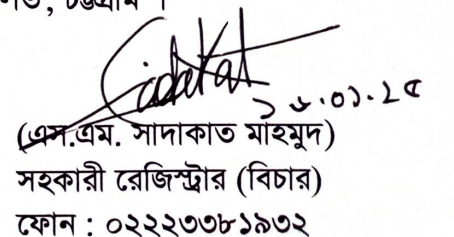 চট্টগ্রাম ।
Sadakat
১৬.০১.২৫
(এস.এম. সাদাকাত মাহমুদ)
সহকারী রেজিস্ট্রার (বিচার)
ফোন : ০২২২৩৩৮১৯৩২